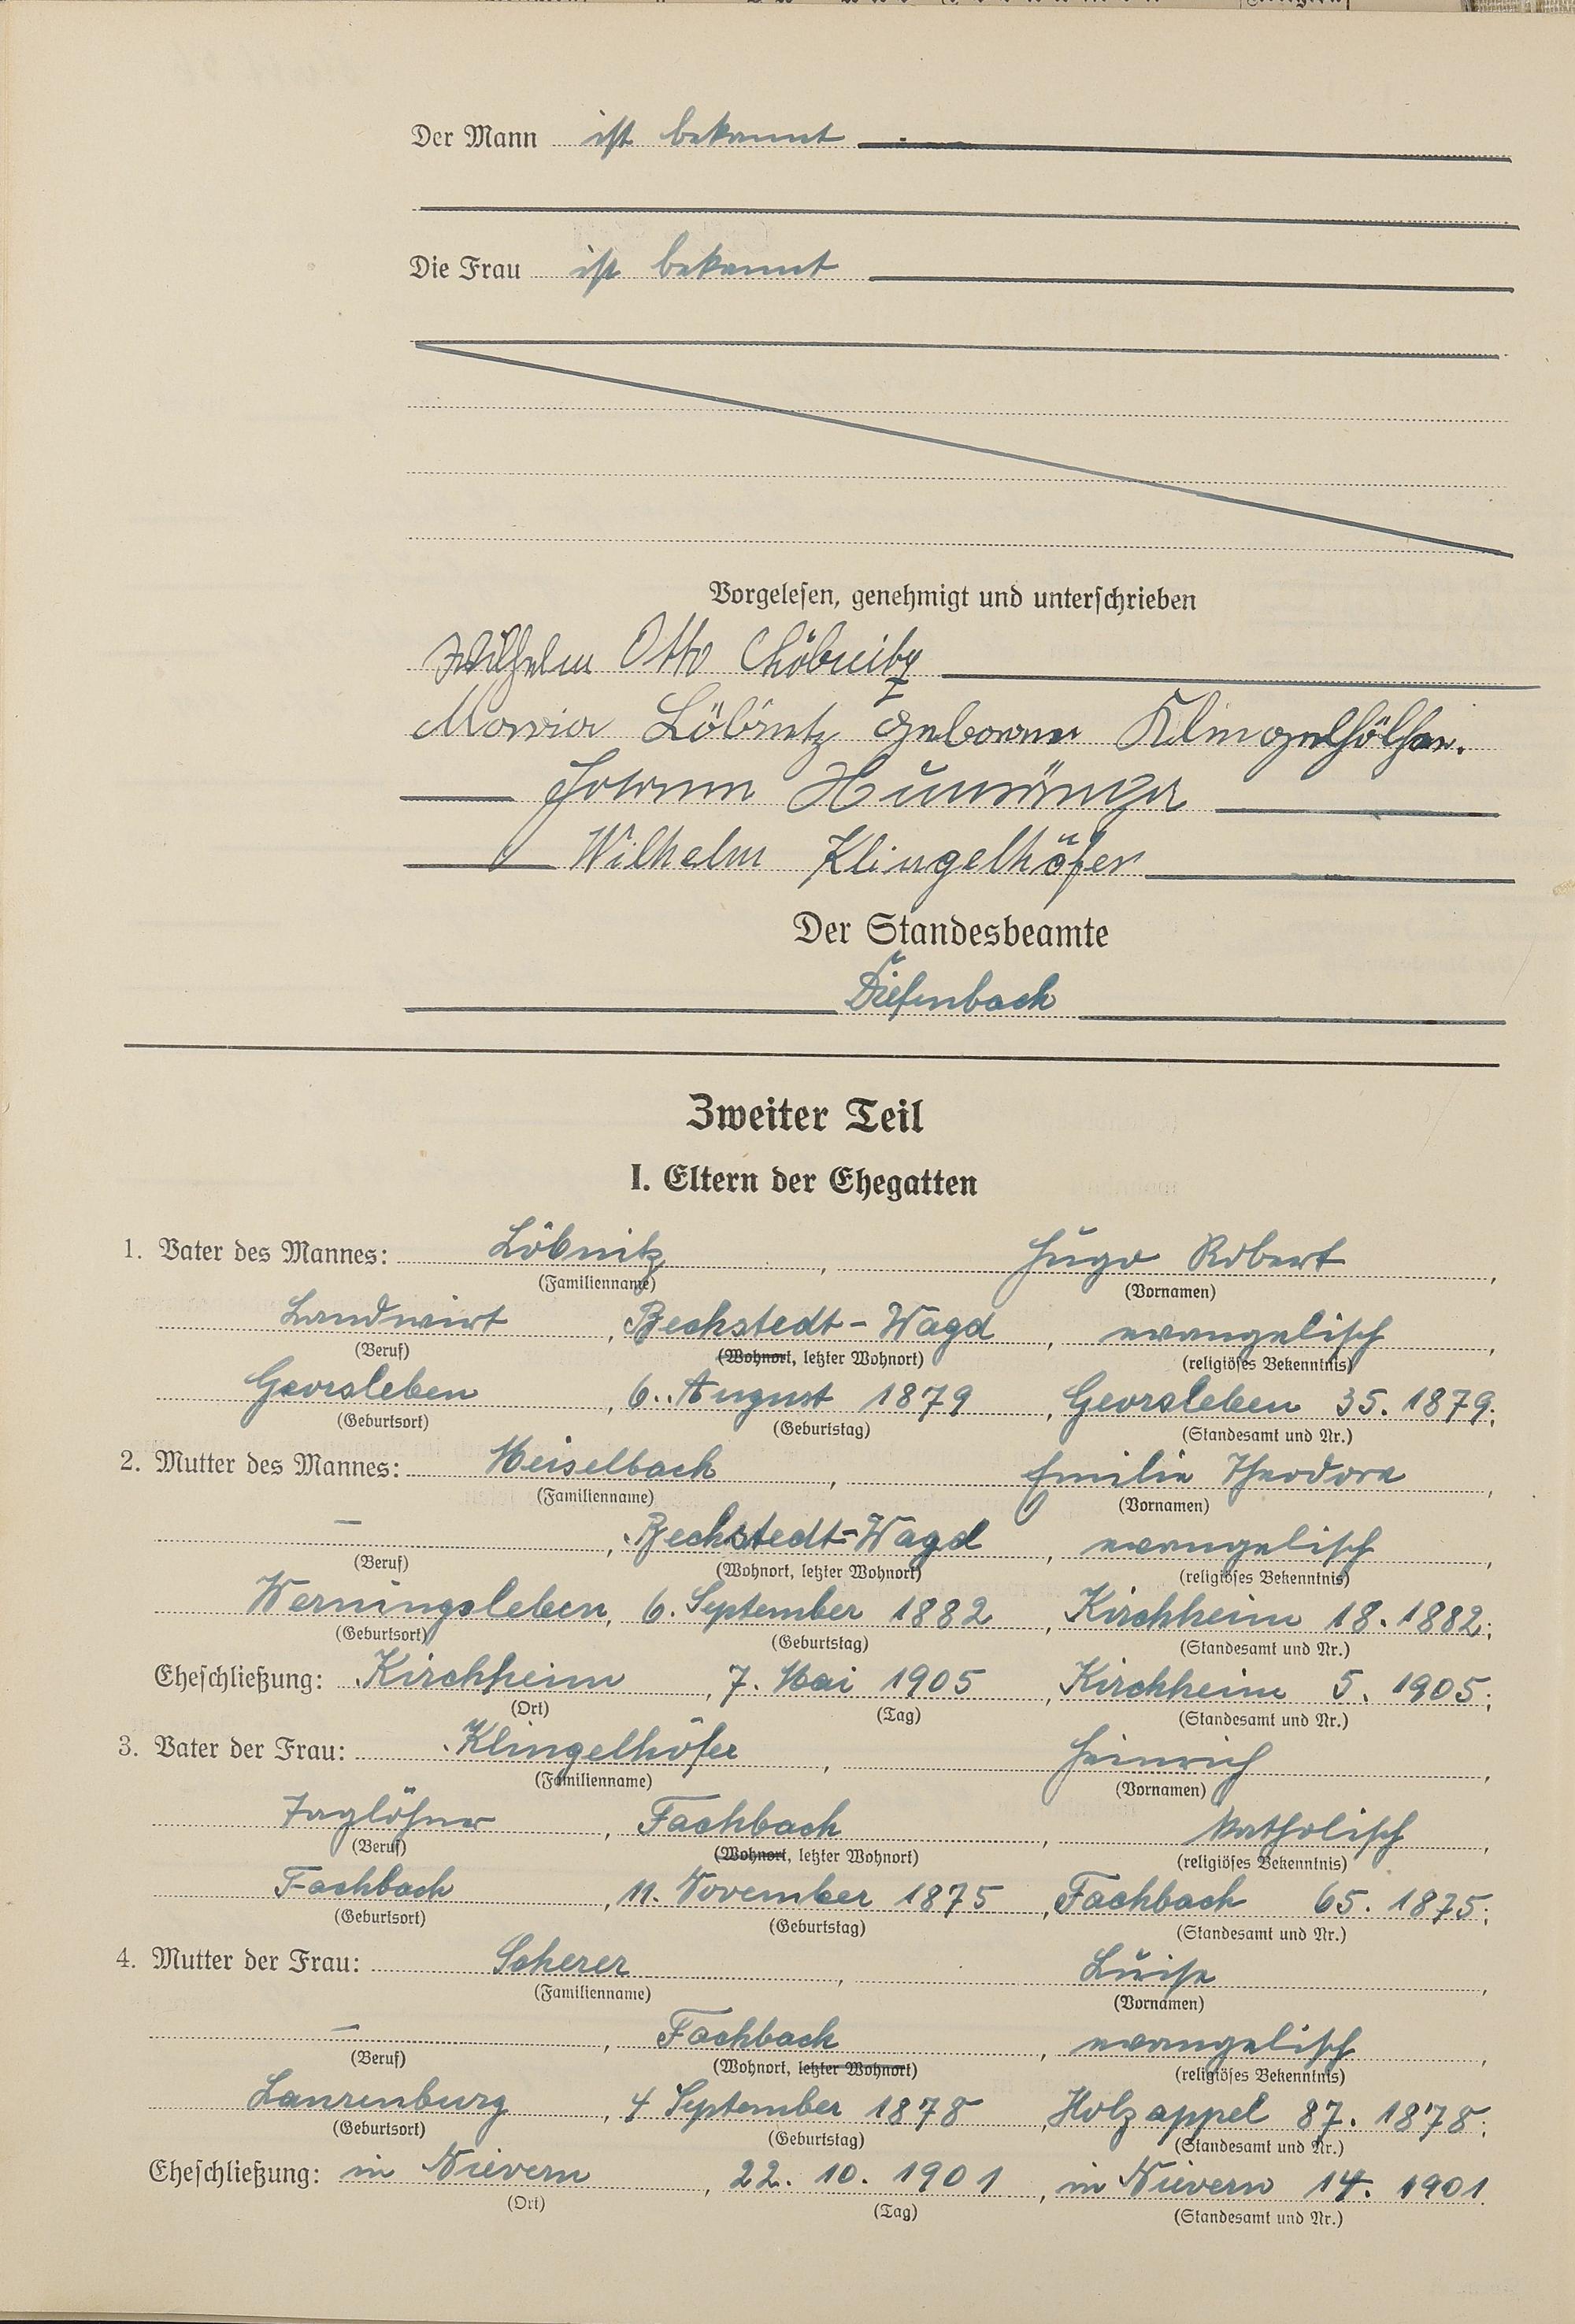 Der Mann ist bekannt
Die Frau ist bekannt
Vorgelesen, genehmigt und unterschrieben
Wilhelm Otto Löbnitz
Maria Löbnitz geborene Klingelhöfer.
Johann
Wilhelm Klingelhöfer
Der Standesbeamte
Diefenbach
Zweiter Teil
I. Eltern der Ehegatten
1. Vater des Mannes: Löbnitz, Hugo Robert,
(Familienname) (Vornamen)
Landwirt, Bechstedt-Wagd, evangelisch,
(Beruf) (Wohnort, letzter Wohnort) (religiöses Bekenntnis)
Georsleben, 6. August 1879, Georsleben 35. 1879;
(Geburtsort) (Geburtstag) (Standesamt und Nr.)
2. Mutter des Mannes: Meiselbach, Emilie Theodora,
(Familienname) (Vornamen)
—, Bechstedt-Wagd, evangelisch,
(Beruf) (Wohnort, letzter Wohnort) (religiöses Bekenntnis)
Werningsleben, 6. September 1882, Kirchheim 18. 1882;
(Geburtsort) (Geburtstag) (Standesamt und Nr.)
Eheschließung: Kirchheim, 7. Mai 1905, Kirchheim 5. 1905;
(Ort) (Tag) (Standesamt und Nr.)
3. Vater der Frau: Klingelhöfer, Heinrich,
(Familienname) (Vornamen)
Taglöhner, Fachbach, katholisch,
(Beruf) (Wohnort, letzter Wohnort) (religiöses Bekenntnis)
Fachbach, 11. November 1875, Fachbach 65. 1875;
(Geburtsort) (Geburtstag) (Standesamt und Nr.)
4. Mutter der Frau: Scherer, Luise,
(Familienname) (Vornamen)
—, Fachbach, evangelisch,
(Beruf) (Wohnort, letzter Wohnort) (religiöses Bekenntnis)
Laurenburg, 4 September 1878, Holzappel 87. 1878;
(Geburtsort) (Geburtstag) (Standesamt und Nr.)
Eheschließung: in Nievern, 22. 10. 1901, in Nievern 14. 1901
(Ort) (Tag) (Standesamt und Nr.)